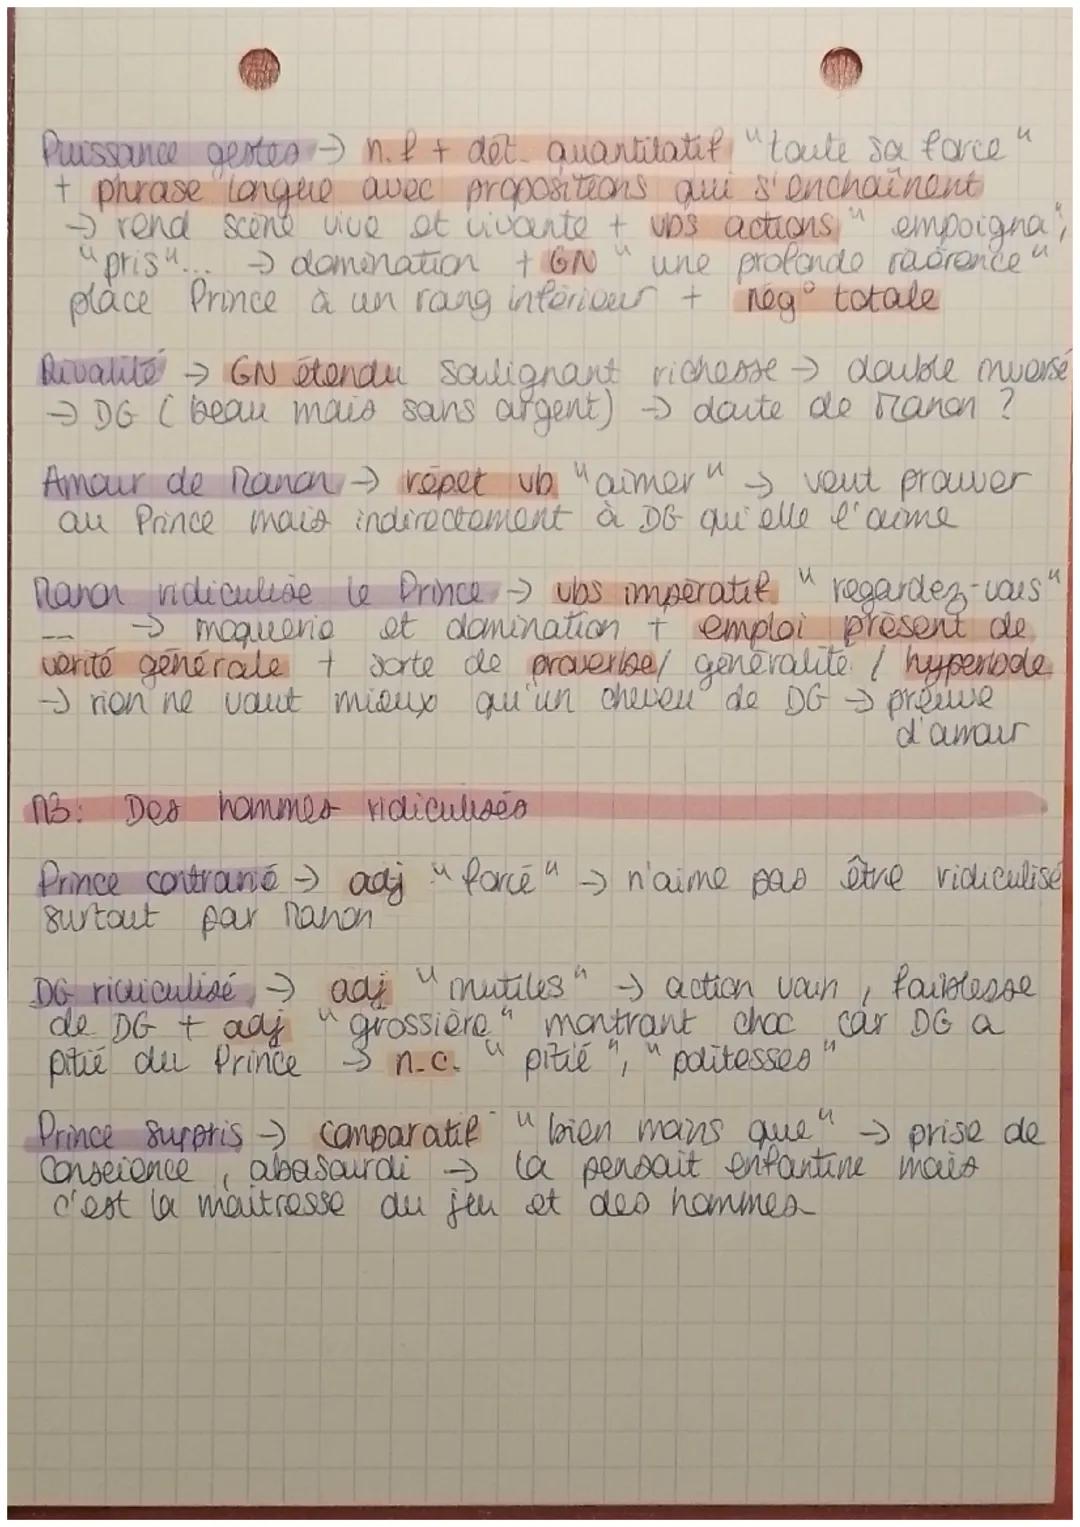 Puissance gestes → n.f + dét. quantitatif "toute sa force"
+ phrase longue avec propositions qui s'enchaînent
→ rend scène vive et vivante + vbs actions "empoigna",
"pris"... → domination + GN "une profonde révérence"
place Prince à un rang inférieur + nég° totale
Rivalité → GN étendu soulignant richesse → double inversé
→ DG (beau mais sans argent) → doute de Manon ?
Amour de Manon → répet vb "aimer" → veut prouver
au Prince mais indirectement à DG qu'elle l'aime
Manon ridiculise le Prince → vbs impératif "regardez-vous"
-- → moquerie et domination + emploi présent de
vérité générale + sorte de proverbe/ généralité / hyperbole
→ rien ne vaut mieux qu'un cheveu de DG → preuve
d'amour
M3: Des hommes ridiculisés
Prince contrarié → adj "forcé" → n'aime pas être ridiculisé
surtout par Manon
DG ridiculisé → adj "inutiles" → action vain, faiblesse
de DG + adj "grossière" montrant choc car DG a
pitié du Prince → n.c. "pitié", "politesses"
Prince surpris → comparatif "bien moins que" → prise de
conscience, abasourdi → la pensait enfantine mais
c'est la maitresse du jeu et des hommes